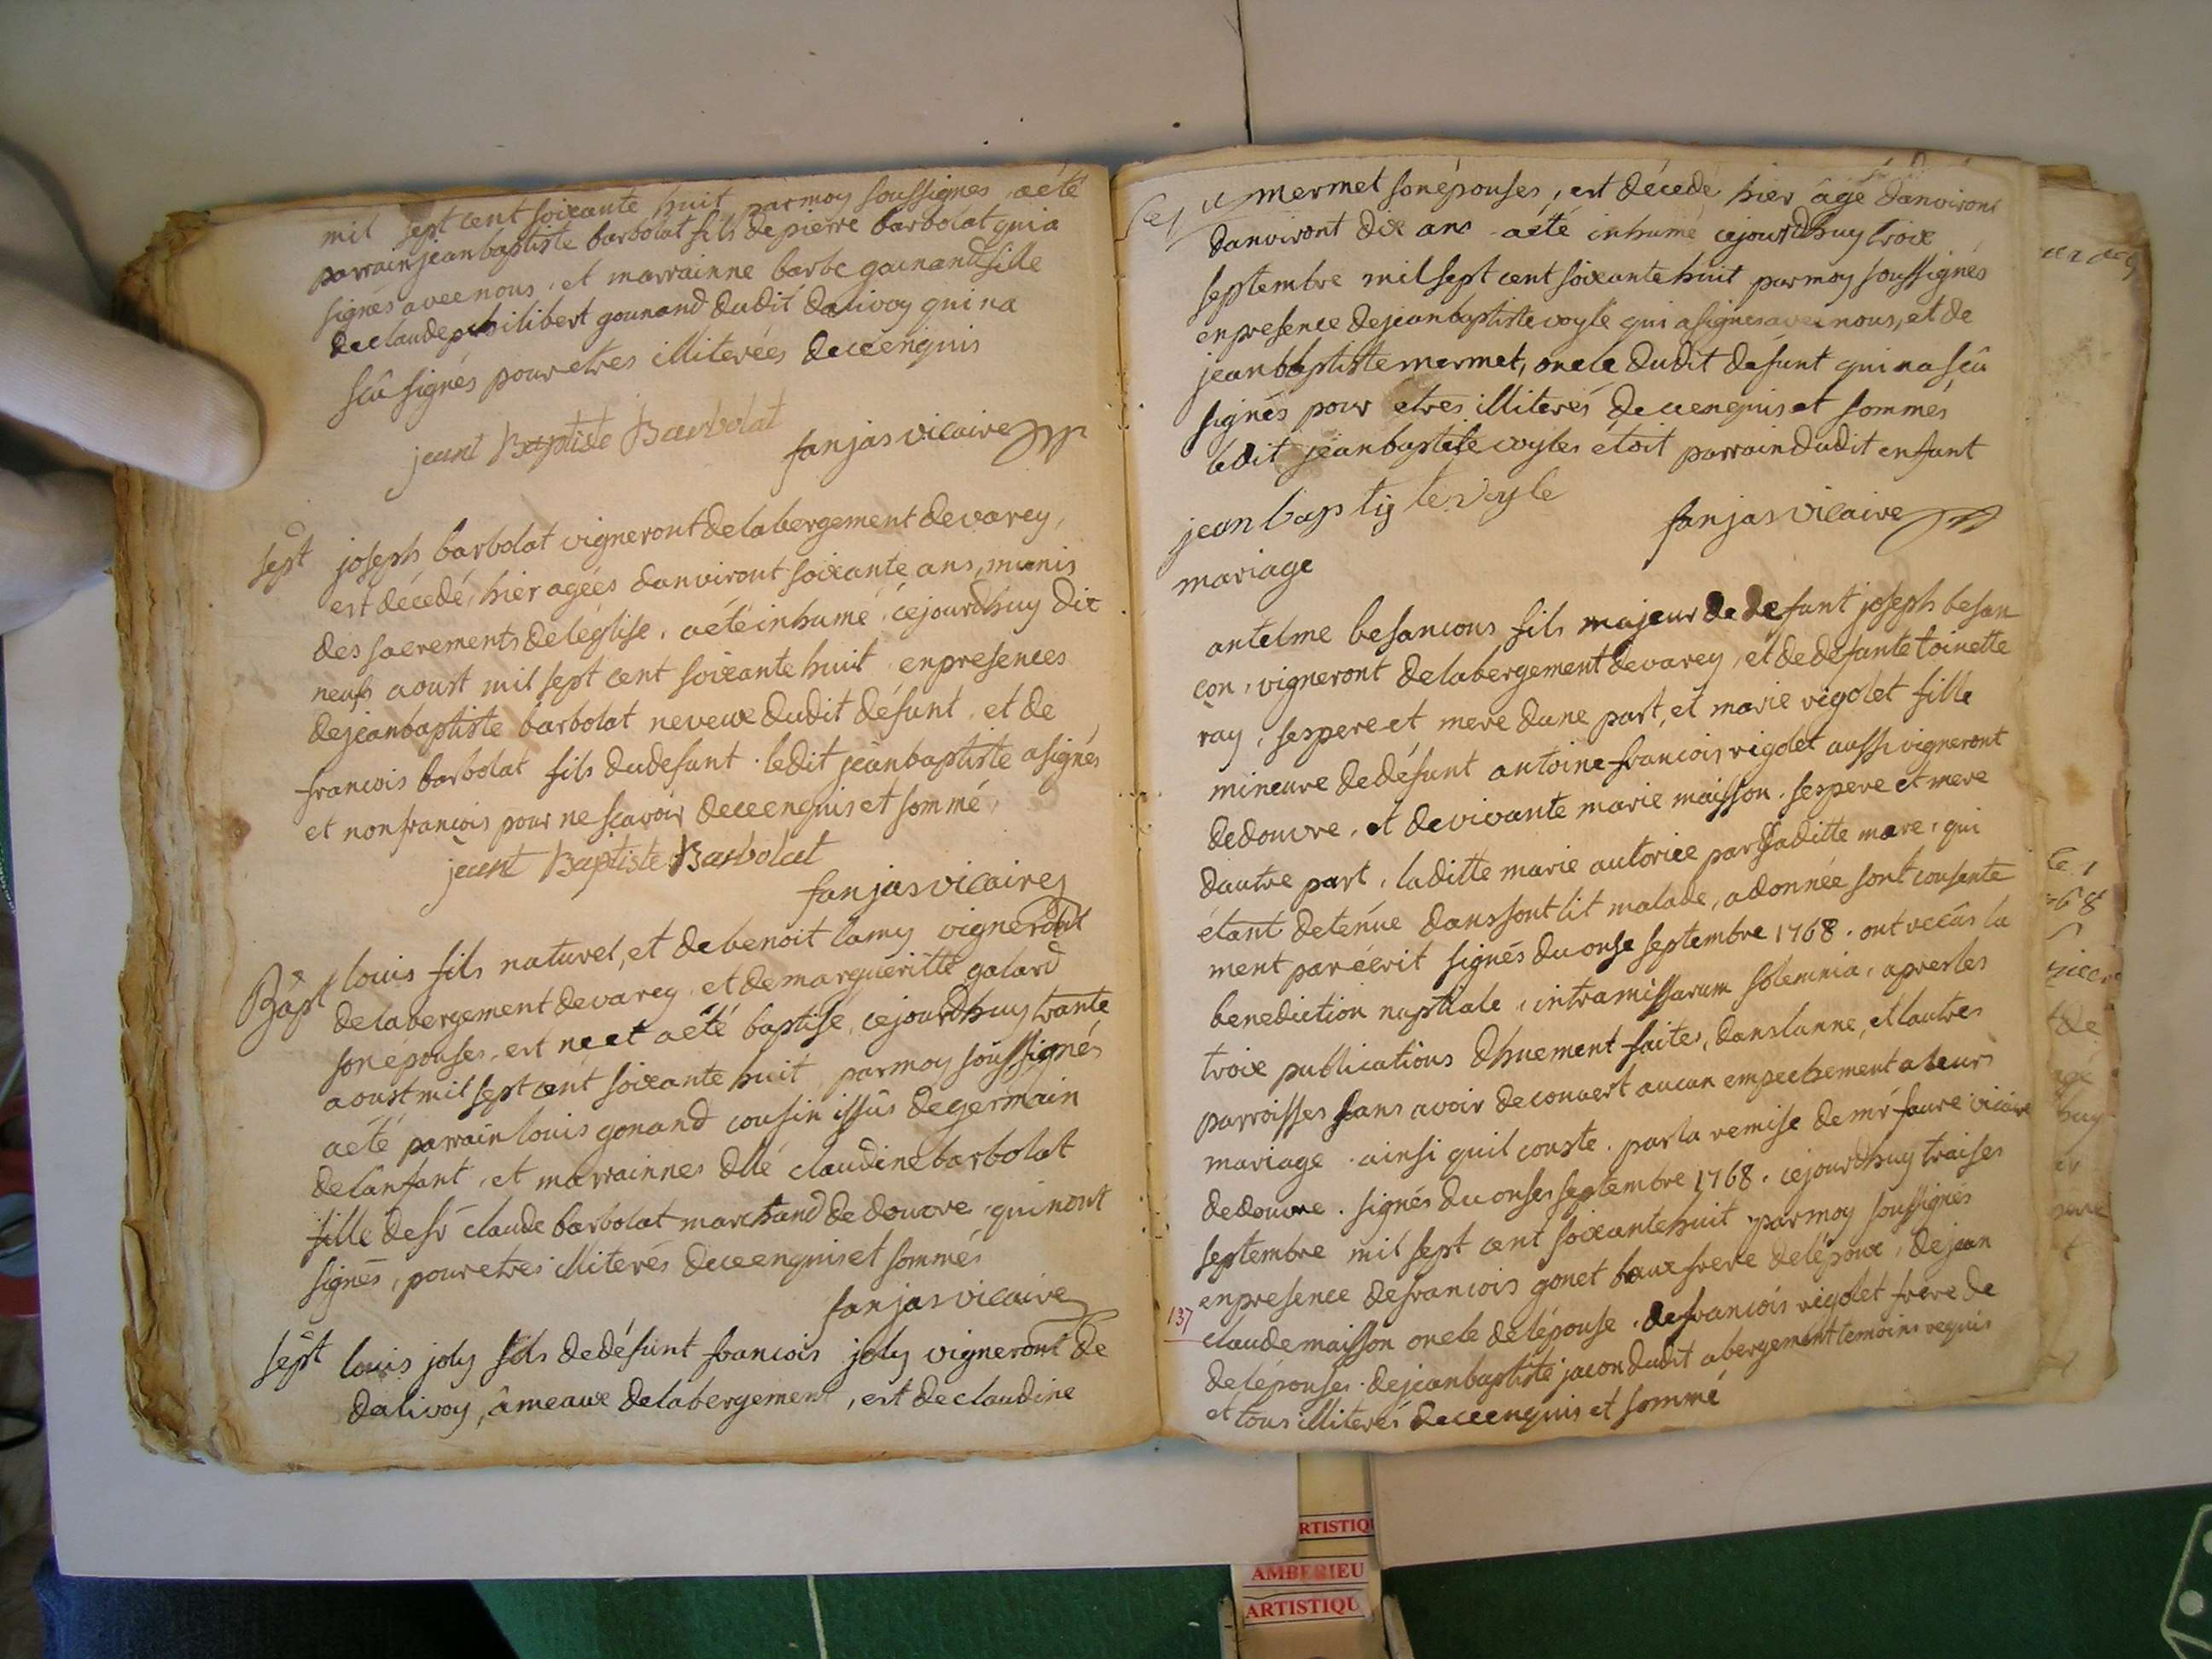 mil sept cent soixante huit parmoy soussignes, aété
parrain jeanbaptiste barbolat fils depierre barbolat quia
signés avec nous, et marrainne barbe gounand fille
declaude philibert gounand dudit dalivoy quina
scû signés pour etres illiterées deceenquis
jeant Baptiste Barbolat
fanjas vicaire
sept joseph barbolat vigneront delabergement devarey,
est décedé, hier agées danviront soixante ans, munis
des sacrements deleglise, aété inhumé, cejourdhuy dix
neufs aoust mil sept cent soixante huit enpresences
dejeanbaptiste barbolat neveux dudit défunt, et de
francois barbolat fils dudefunt. ledit jeanbaptiste asignés
et nonfrancois pour ne scavoir deceenquis et sommé,
jeant Baptiste Barbolat
fanjas vicaire
Bapt louis fils naturel, et debenoit lamy vigneront
delabergement devarey, et demargueritte galard
sonépouses, est né et aété baptise, cejourdhuy trante
aoust mil sept cent soixante huit, parmoy soussignés
aété parrain louis gonand cousin issûs degermain
delanfant, et marrainnes dlle claudine barbolat
fille desr claude barbolat marchand de douvre quinont
signés, pour etres illiterés deceenquis et sommés
fanjas vicaire
sept louis joly fils dedéfunt francois joly vigneront de
dalivoy, âmeaux delabergement, est declaudine
mermet sonépouses, est décedé hier âgé danviront
danviront dix ans aété inhumé cejourdhuy troix
septembre mil sept cent soixante huit parmoy soussignés
enpresence dejeanbaptiste voyle qui asignés avec nous, et de
jeanbaptiste mermet, oncle dudit defunt qui na scû
signés pour etres illiterés deceenquis et sommés
ledit jeanbaptiste voyles étoit parrain dudit enfant
jean baptig te voyle
fanjas vicaire
mariage
antelme besancons fils majeur de defunt joseph besan
çon, vigneront delabergement devarey, et dedefante toinette
ray, sespere et mere dune part, et marie rigolet fille
mineure dedéfunt antoine francois rigolet aussi vigneront
dedouvre, et devivante marie maisson. sespere et mere
dautre part, laditte marie autorice par saditte mere, qui
étant detenüe dans sont lit malade, adonnée sont consente
ment parécrit signés du onse septembre 1768. ont recûs la
benediction nuptiale, intramissarum solemnia, apres les
troix publications dhuement faites, dans lunne, et lautres
parroisses sans avoir deconvert aucun empechement aleurs
mariage ainsi quil conste. par la remise de mr faure vicaire
dedouvre. signés du onses septembre 1768. cejourdhuy traises
septembre mil sept cent soixante huit parmoy soussignés
enpresence defrancois gonet baux frere delépoux, dejean
137
claude maisson oncle delépouse, defrancois rigolet frere de
delépouses. dejeanbaptiste jacon dudit abergement temoins requis
et tous illiterés deceenquis et sommé
68
RTISTIQ
AMBERIEU
ARTISTIQU